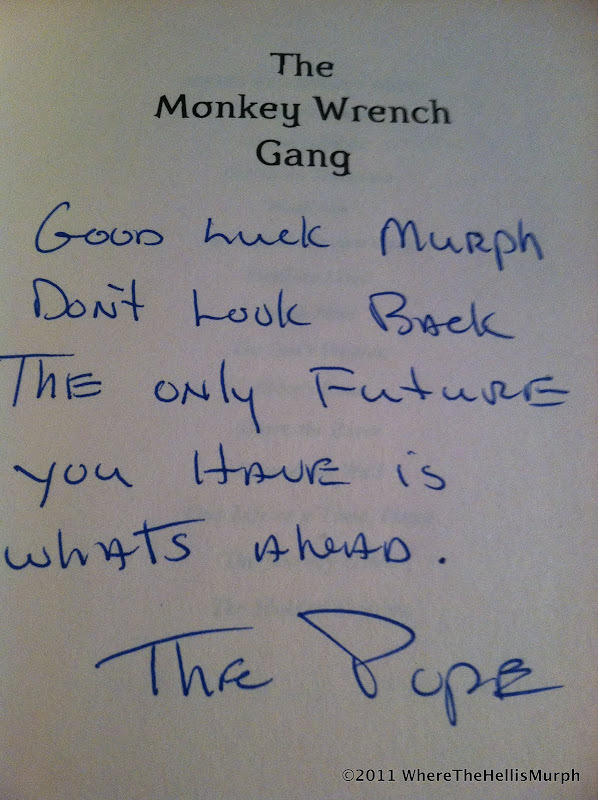 The
Monkey Wrench
Gang
Good Luck Murph
Don't Look Back
The only Future
you Have is
whats Ahead.
The Pope
©2011 WhereTheHellisMurph